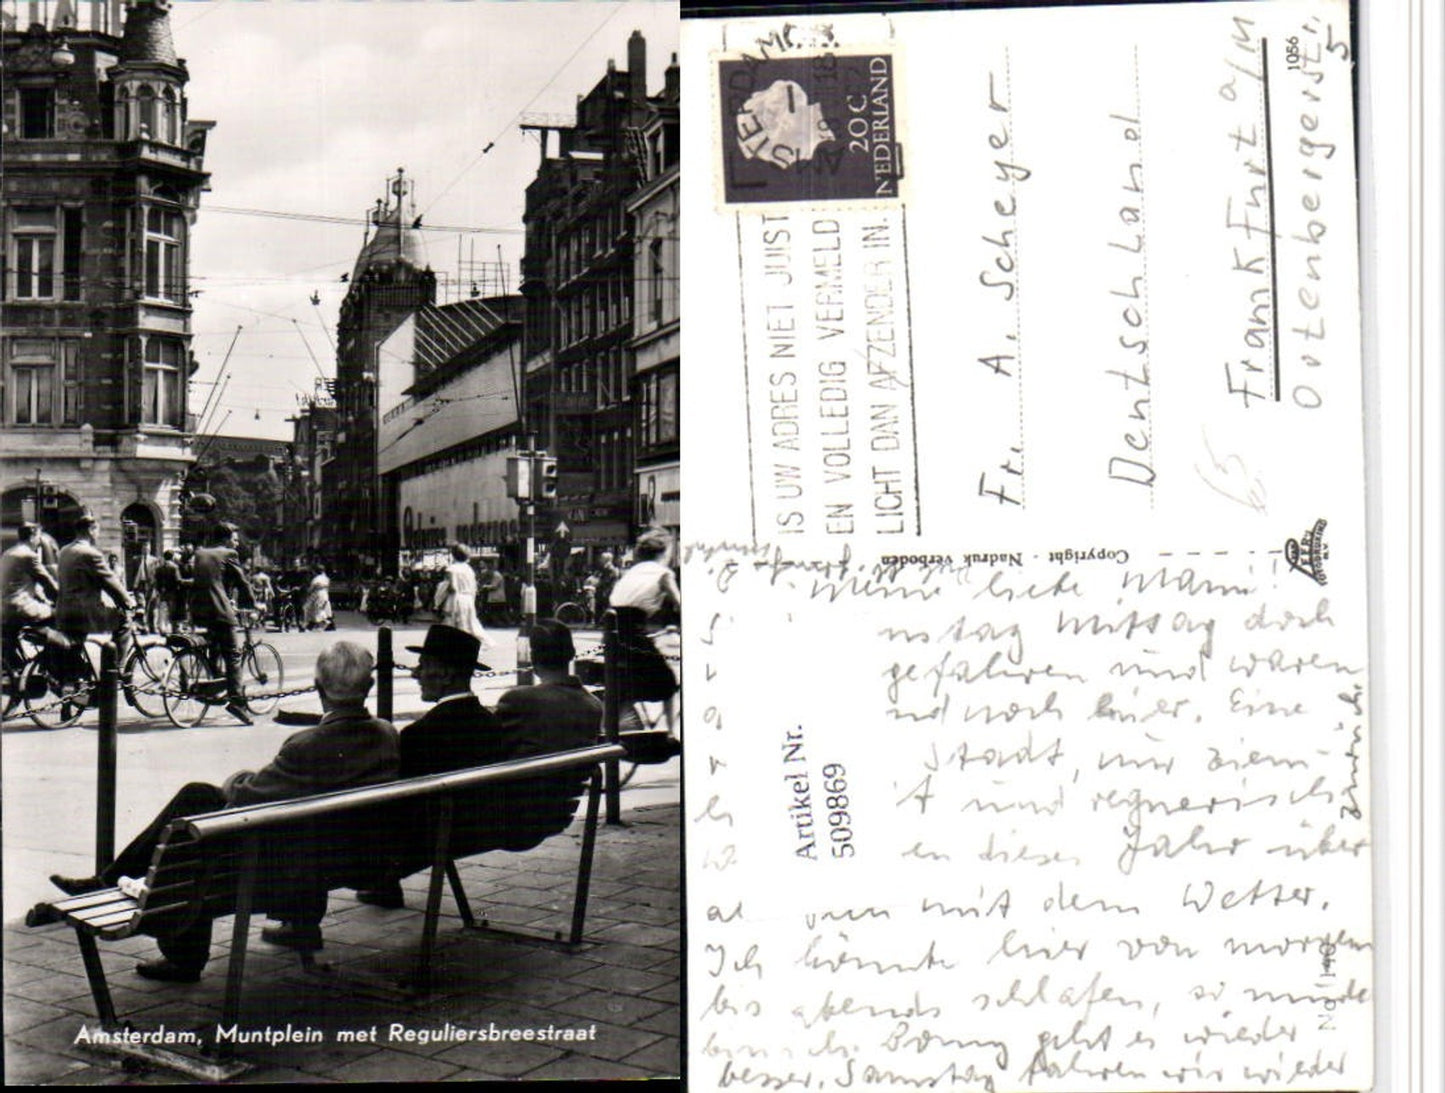 Amsterdam, Muntplein met Reguliersbreestraat
AMSTERDAM
20 C
NEDERLAND
IS UW ADRES NIET JUIST
EN VOLLEDIG VERMELD
LICHT DAN AFZENDER IN.
Fr. A. Scheyer
Deutschland
Frankfurt a/M
Ortenbergerstr.
5
1056
Copyright - Nadruk verboden
Artikel Nr.
509869
Meine liebe Mami!
Mittag doch
gefahren und waren
noch hier. Eine
Stadt, nur ziem-
und regnerisch
dieses Jahr über
mit dem Wetter.
Ich könnte hier von morgen
bis abends schlafen, so müde
bin ich. Bonny geht es wieder
besser. Samstag fahren wir wieder
zurück